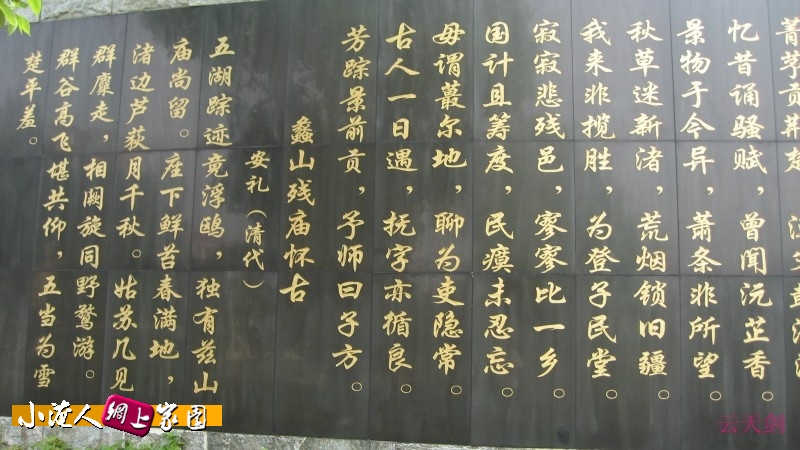 菁茅贡荆楚，
忆昔诵骚赋，曾闻沅芷香。
景物于今异，萧条非所望。
秋草迷新渚，荒烟锁旧疆。
我来非揽胜，为登子民堂。
寂寂悲残邑，寥寥比一乡。
国计且筹度，民瘼未忍忘。
毋谓蕞尔地，聊为吏隐常。
古人一日遇，抚字亦循良。
芳踪景前贡，予师曰子方。
蠡山残庙怀古
安礼（清代）
五湖踪迹竟浮鸥，独有兹山
庙尚留。座下鲜苔春满地，
渚边芦荻月千秋。姑苏几见
群麋走，相阙旋同野鹜游。
群谷高飞堪共仰，五当为雪
楚平羞。
小淹人網上家园
云天剑